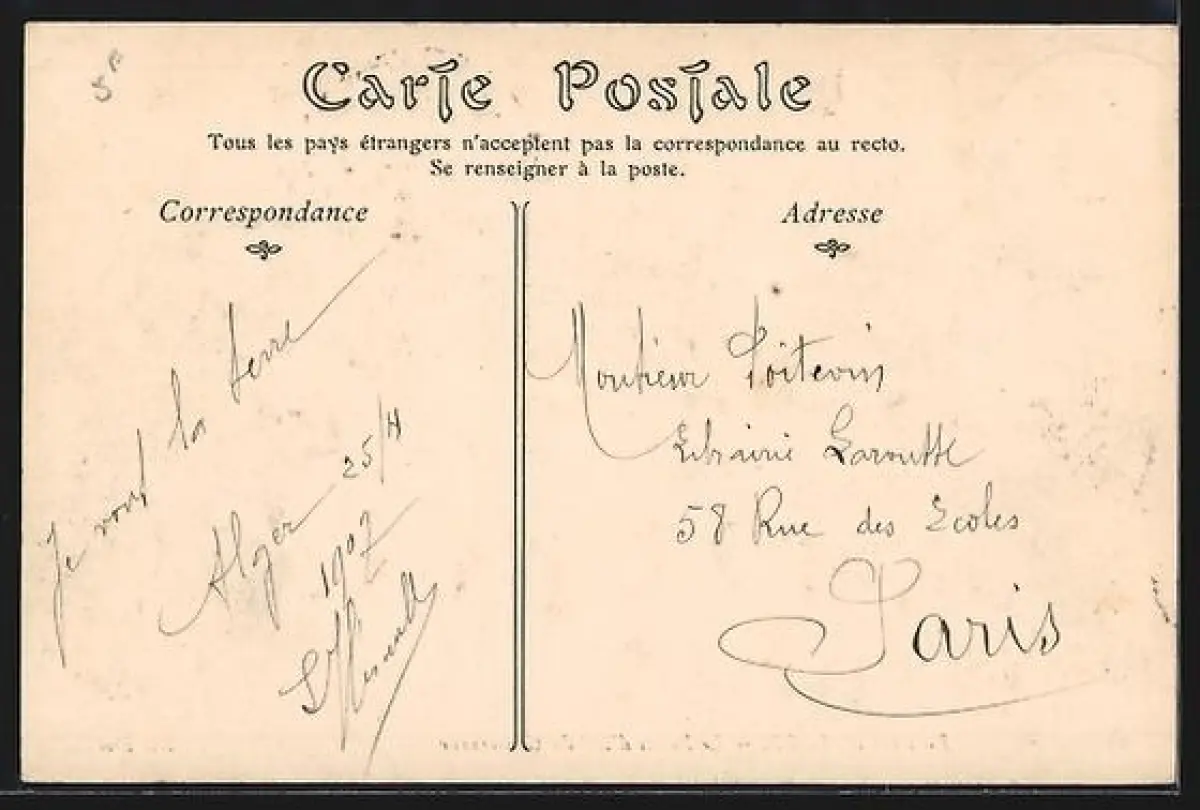 5f
Carte Postale
Tous les pays étrangers n'acceptent pas la correspondance au recto.
Se renseigner à la poste.
Correspondance
Je vous la serre
Alger 25/4
1907
Adresse
Monsieur Poitevin
Librairie Larousse
58 Rue des Ecoles
Paris